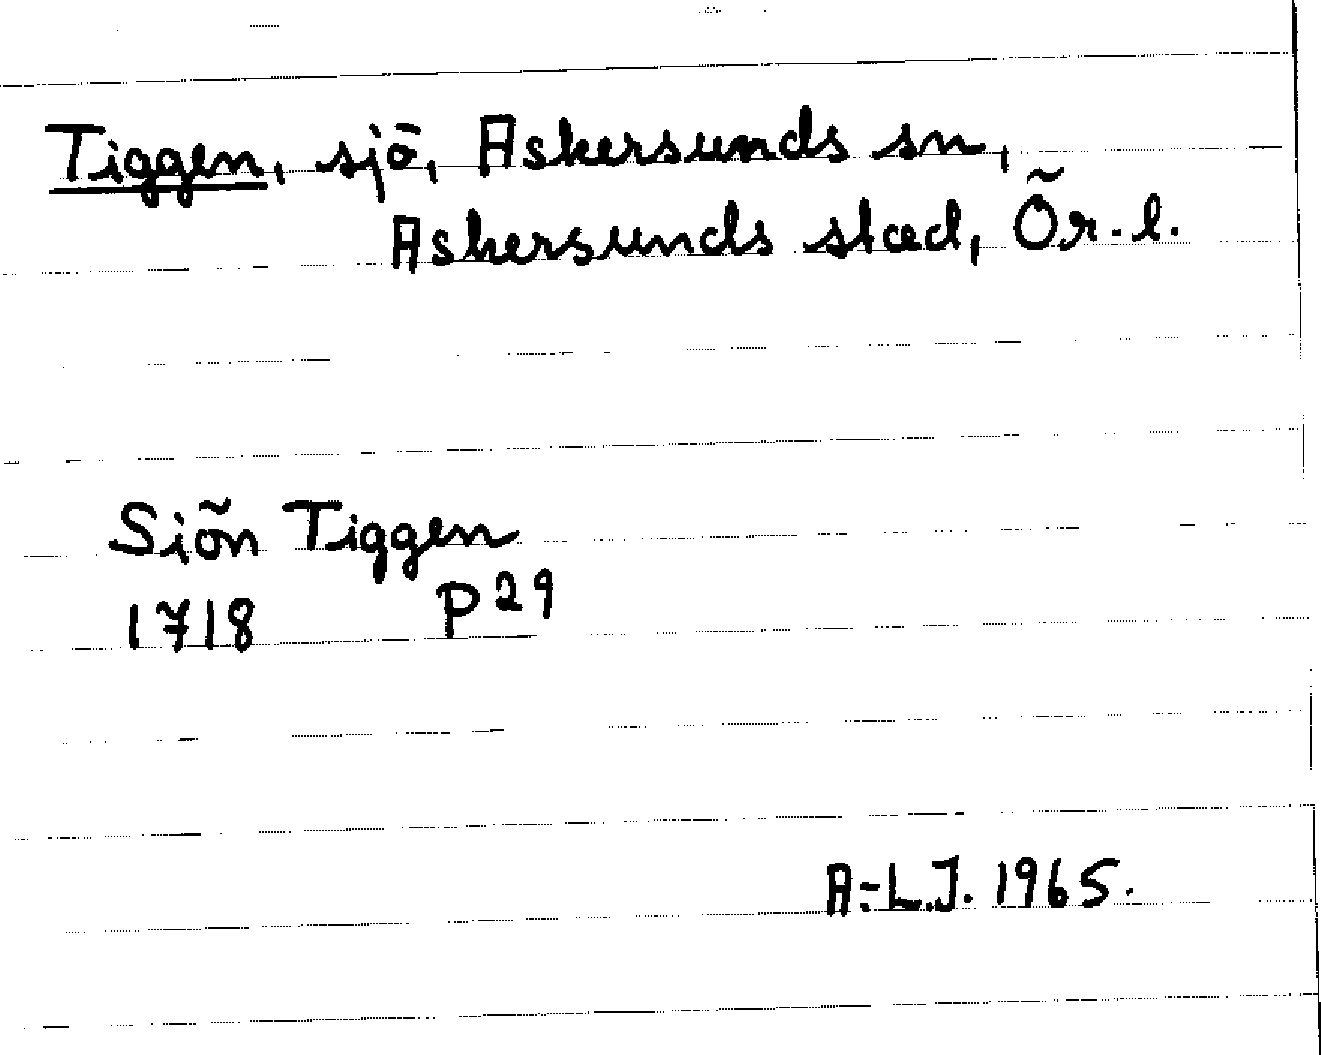 Tiggen, sjö, Askersunds sn,
Askersunds stad, Ör. l.
Siön Tiggen
1718 P 29
A-L.J. 1965.